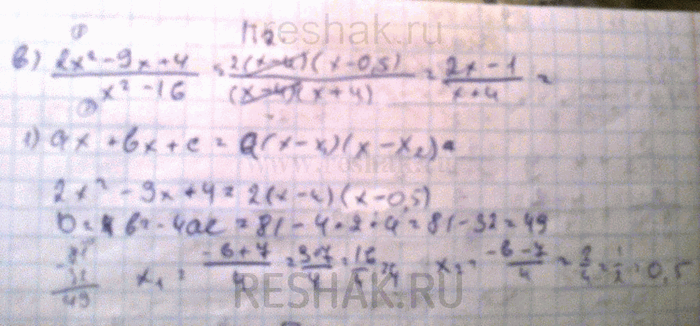 reshak.ru
① №2
в) (2x² - 9x + 4)/(x² - 16) = 2(x-4)(x-0,5)/((x-4)(x+4)) = (2x-1)/(x+4) =
②
1) ax + bx + c = a(x-x₁)(x-x₂)
2x² - 9x + 4 = 2(x-4)(x-0,5)
D = b² - 4ac = 81 - 4·2·4 = 81 - 32 = 49
x₁ = (-b+7)/4 = (9+7)/4 = 16/4 = 4 x₂ = (-b-7)/4 = 2/4 = 1/2 = 0,5
-81
32
49
RESHAK.RU